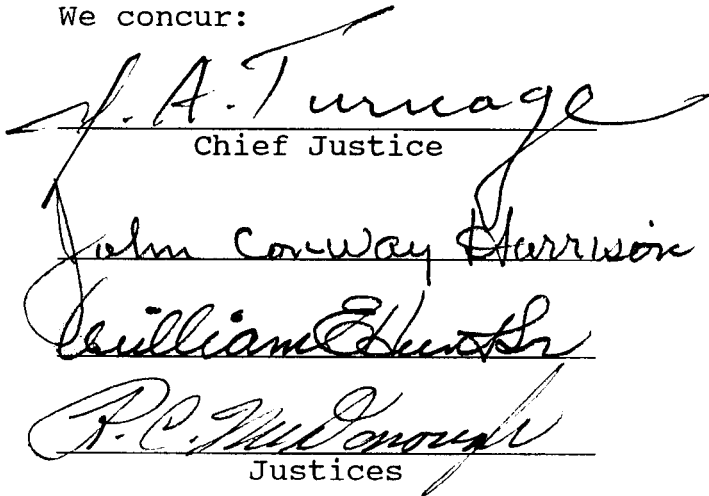 We concur:
J. A. Turnage
Chief Justice
John Conway Harrison
William E Hunt Sr
R. C. McDonough
Justices